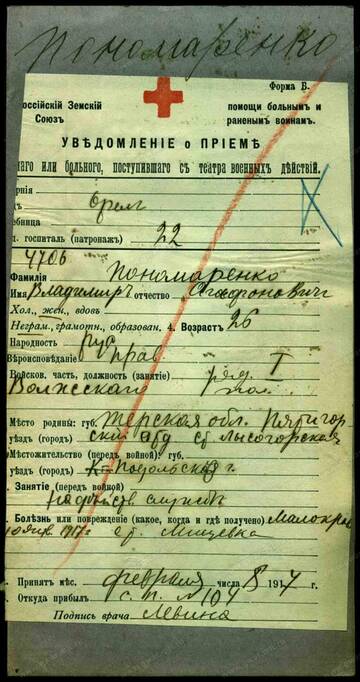 Пономаренко
Форма В.
оссійскій Земскій
Союзъ
помощи больнымъ и
раненымъ воинамъ.
УВѢДОМЛЕНІЕ о ПРІЕМѢ
наго или больного, поступившаго съ театра военныхъ дѣйствій.
рнія
ъ Орелъ
ебница
госпиталь (патронажъ) 22
4706
Фамилія Пономаренко
Имя Владимиръ отчество Агафоновичъ
Хол., жен., вдовъ
Неграм., грамотн., образован. 4. Возрастъ 26
Народность рус
Вѣроисповѣданіе прав
Войсков. часть, должность (занятіе) ряд. I
Волжскаго пол.
Мѣсто родины: губ. Терская обл. Пятигор
уѣздъ (городъ) ский отд Лысогорская
Мѣстожительство (передъ войной): губ.
уѣздъ (городъ)
Занятіе (передъ войной)
служб
Болѣзнь или поврежденіе (какое, когда и гдѣ получено) Малокров
10 янв. 1917г
Принятъ мѣс. февраля числа 8 1917 г.
Откуда прибылъ с. п. № 104
Подпись врача Левина